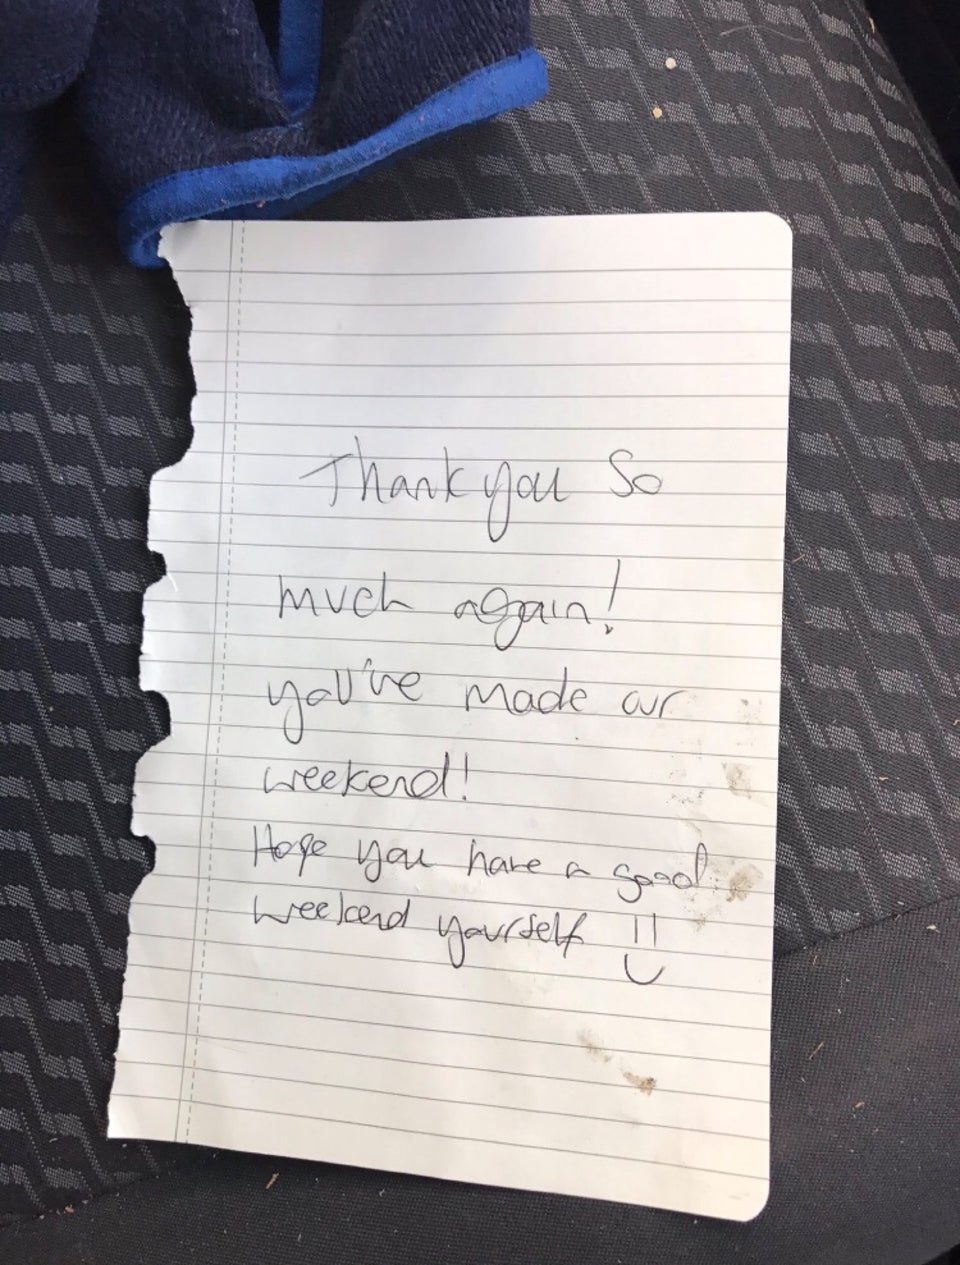 Thank you So
much again!
you've made our
weekend!
Hope you have a good
weekend yourself !!